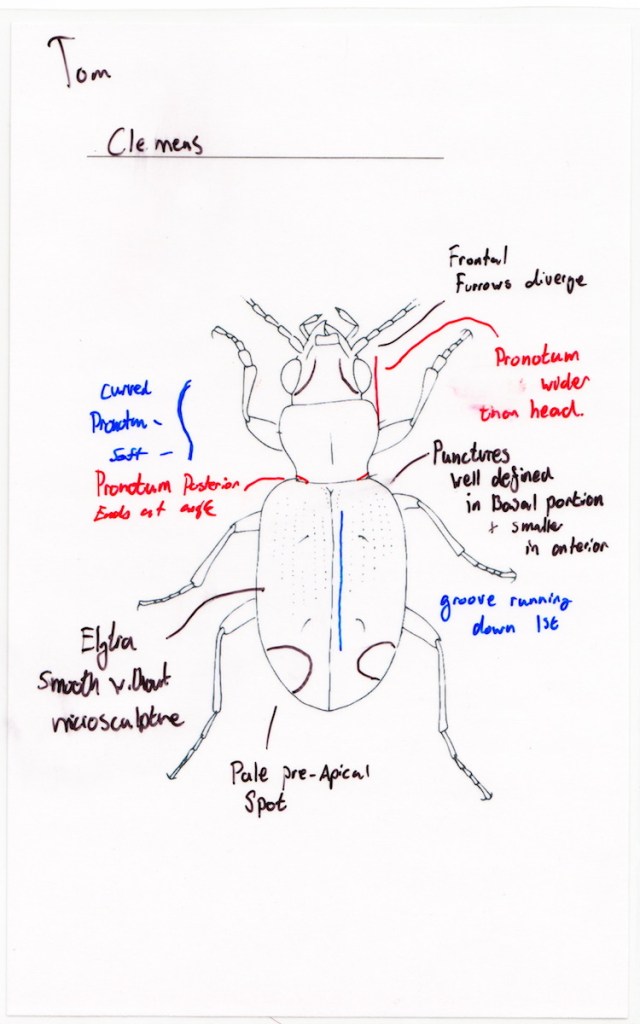 Tom
Clemens
Frontal
Furrows diverge
Pronotum
wider
than head.
Curved
Pronotum -
Soft -
Pronotum Posterior
Ends at angle
Punctures
Well defined
in Basal portion
+ smaller
in anterior
groove running
down 1st
Elytra
Smooth without
microsculpture
Pale pre-Apical
Spot